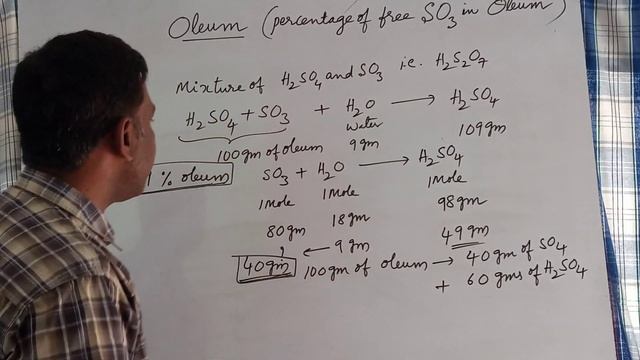 Oleum (percentage of free SO3 in Oleum)
Mixture of H2SO4 and SO3 i.e. H2S2O7
H2SO4 + SO3 + H2O → H2SO4
water
100gm of oleum 9gm 109gm
% oleum SO3 + H2O → H2SO4
1Mole 1Mole 1Mole
80gm 18gm 98gm
40gm ← 9gm 49gm
100gm of oleum → 40gm of SO4
+ 60gms of H2SO4